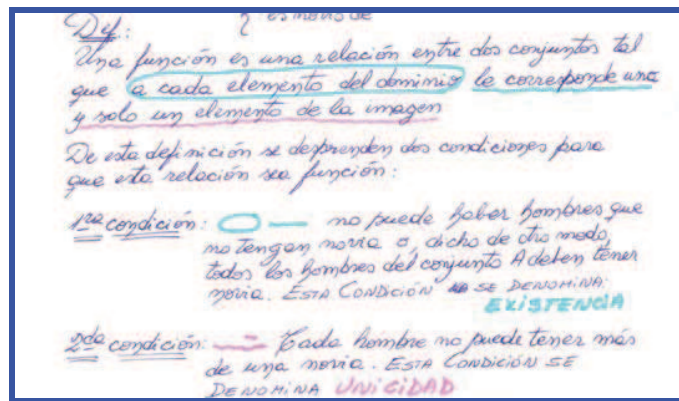 es novio de
Def.:
Una función es una relación entre dos conjuntos tal
que a cada elemento del dominio le corresponde uno
y solo un elemento de la imagen
De esta definición se desprenden dos condiciones para
que esta relación sea función:
1ra condición: no puede haber hombres que
no tengan novia o, dicho de otro modo,
todos los hombres del conjunto A deben tener
novia. ESTA CONDICIÓN SE DENOMINA
EXISTENCIA
2da condición: Cada hombre no puede tener más
de una novia. ESTA CONDICIÓN SE
DENOMINA UNICIDAD